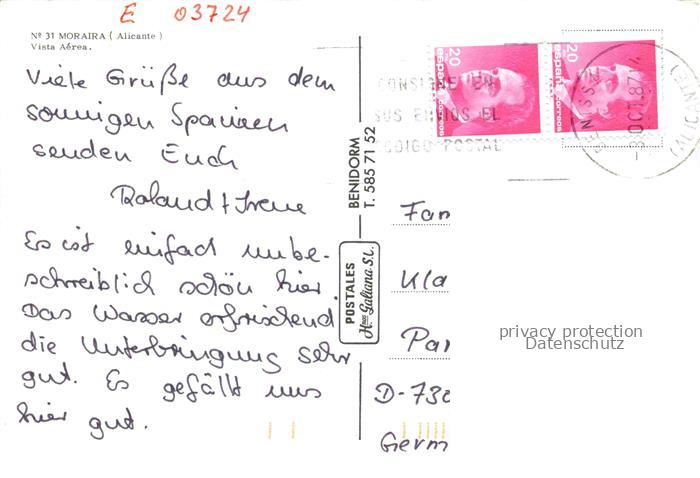 E 03724
Nº 31 MORAIRA ( Alicante )
Vista Aérea.
Viele Grüße aus dem
sonnigen Spanien
senden Euch
Roland + Irene
Es ist einfach unbe-
schreiblich schön hier.
Das Wasser erfrischend,
die Unterbringung sehr
gut. Es gefällt uns
hier gut.
BENIDORM
T. 585 71 52
POSTALES
Hnos Galiana S.L.
20
españa correos
20
españa correos
CONSIGNE EN
SUS ENVIOS EL
CODIGO POSTAL
-8 OCT 87
(ALICANTE)
Fam
Kla
Par
D-730
Germ
privacy protection
Datenschutz